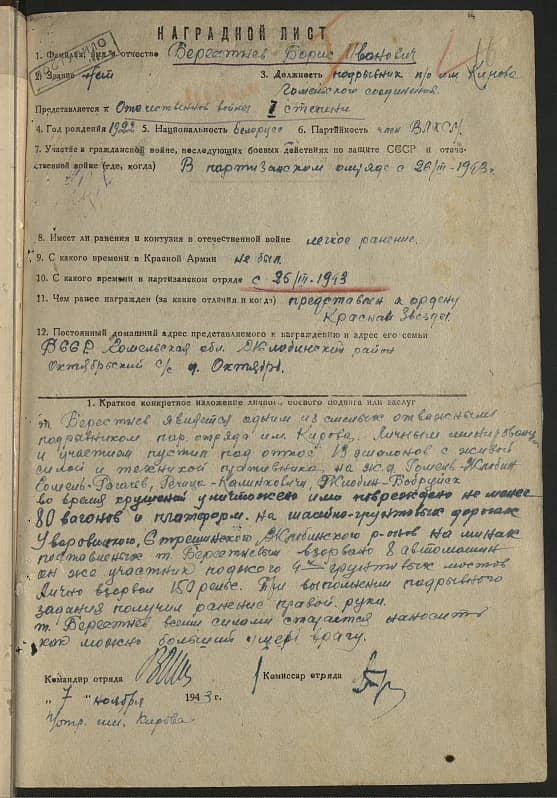 НАГРАДНОЙ ЛИСТ
1. Фамилия, имя и отчество Берестнев Борис Иванович
2) Звание нет 3. Должность подрывник п/о им. Кирова
Гомельского соединения.
Представляется к Отечественной войны I степени
4. Год рождения 1922 5. Национальность белорус 6. Партийность член ВЛКСМ
7. Участие в гражданской войне, последующих боевых действиях по защите СССР и отече-
ственной войне (где, когда) В партизанском отряде с 26/III-1943 г.
8. Имеет ли ранения и контузии в отечественной войне легкое ранение.
9. С какого времени в Красной Армии не был
10. С какого времени в партизанском отряде с 26/III-1943
11. Чем ранее награжден (за какие отличия и когда) представлен к ордену
Красная Звезда.
12. Постоянный домашний адрес представляемого к награждению и адрес его семьи
БССР Гомельская обл. Жлобинский район
Октябрьский с/с д. Октябрь.
1. Краткое конкретное изложение личного боевого подвига или заслуг
т. Берестнев является одним из смелых отважным
подрывником пар. отряда им. Кирова. Личным минированием
и участием пустил под откос 13 эшелонов с живой
силой и техникой противника, на ж.д. Гомель-Жлобин
Гомель-Рогачев, Речица-Калинковичи, Жлобин-Бобруйск
во время крушений уничтожено или повреждено не менее
80 вагонов и платформ. На шассейно-грунтовых дорогах
Уваровичского, Стрешинского, Жлобинского р-нов на минах
поставленых т. Берестневым взорвано 8 автомашин
он же участник поджога 4-х грунтовых мостов
Лично взорвал 150 рельс. При выполнении подрывного
задания получил ранение правой руки.
т. Берестнев всеми силами старается наносить
как можно больший ущерб врагу.
Командир отряда Комиссар отряда
„7" ноября 1943 г.
п/отр. им. Кирова